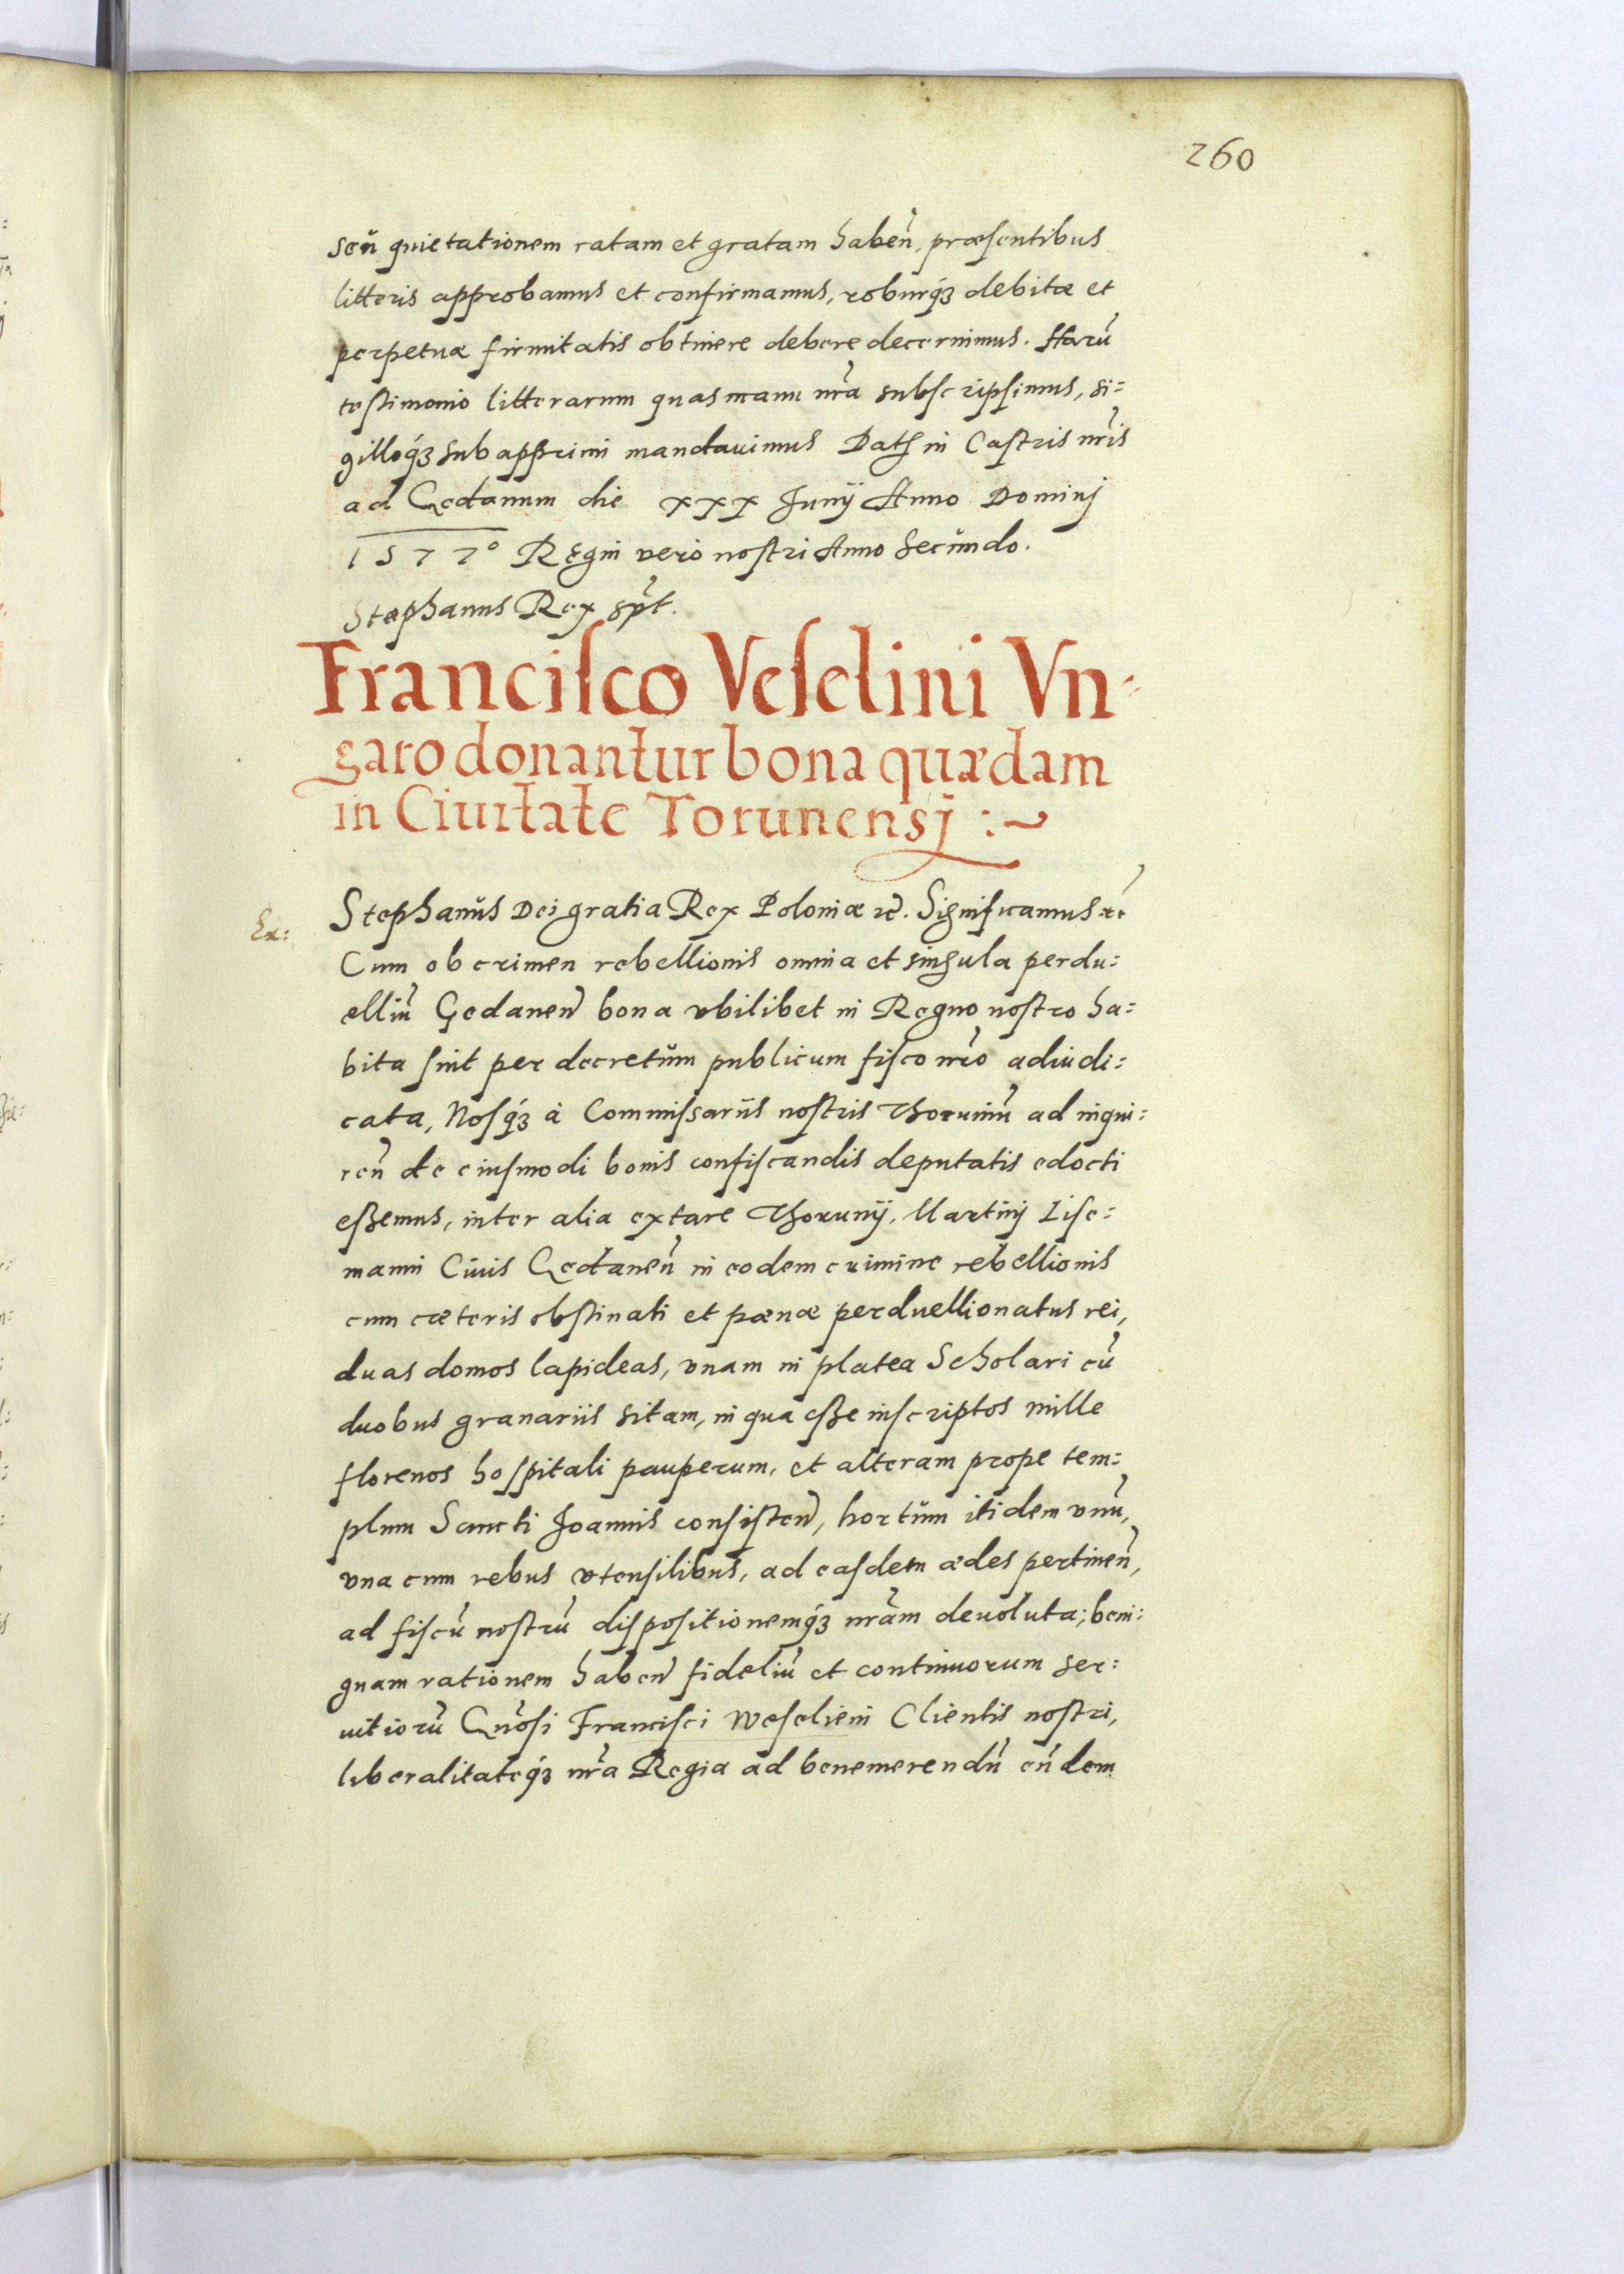 260
seu quietationem ratam et gratam haben̄, præsentibus
litteris approbamus et confirmamus, roburq́ꝫ debitæ et
perpetuæ firmitatis obtinere debere decernimus. Harū
testimonio litterarum quas manu nr̄a subscripsimus, si=
gilloq́ꝫ subapprimi mandauimus Datꝭ in Castris nr̄is
ad Gedanum die xxx Junij Anno Dominj
1577º Regni vero nostri Anno Secundo.
Stephanus Rex spt̄.
Francisco Veselini Vn=
garo donantur bona quædam
in Ciuitate Torunensj :~
Ex:
Stephanus Dei gratia Rex Poloniæ ꝛc̄. Significamus ꝛc̄
Cum ob crimen rebellionis omnia et singula perdu:
elliū Gedanen̄ bona vbilibet in Regno nostro ha=
bita sint per decretum publicum fisco nr̄o adiudi:
cata, Nosq́ꝫ à Commissariis nostris Thoruniū ad inqui:
ren̄ de eiusmodi bonis confiscandis deputatis edocti
essemus, inter alia extare Thorunij, Martinj Lise:
manni Ciuis Gedanen̄ in eodem crimine rebellionis
cum cæteris obstinati et pœnæ perduellionatus rei,
duas domos lapideas, vnam in platea Scholari cū
duobus granariis sitam, in qua esse inscriptos mille
florenos hospitali pauperum, et alteram prope tem:
plum Sancti Joannis consisten̄, hortum itidem vnū,
vna cum rebus vtensilibus, ad easdem ædes pertinen̄,
ad fiscū nostrū dispositionemq́ꝫ nr̄am deuoluta; beni:
gnam rationem haben̄ fideliū et continuorum ser:
uitiorū Gn̄osi Francisci Weselieni Clientis nostri,
liberalitateq́ꝫ nr̄a Regia ad benemerendū eūdem